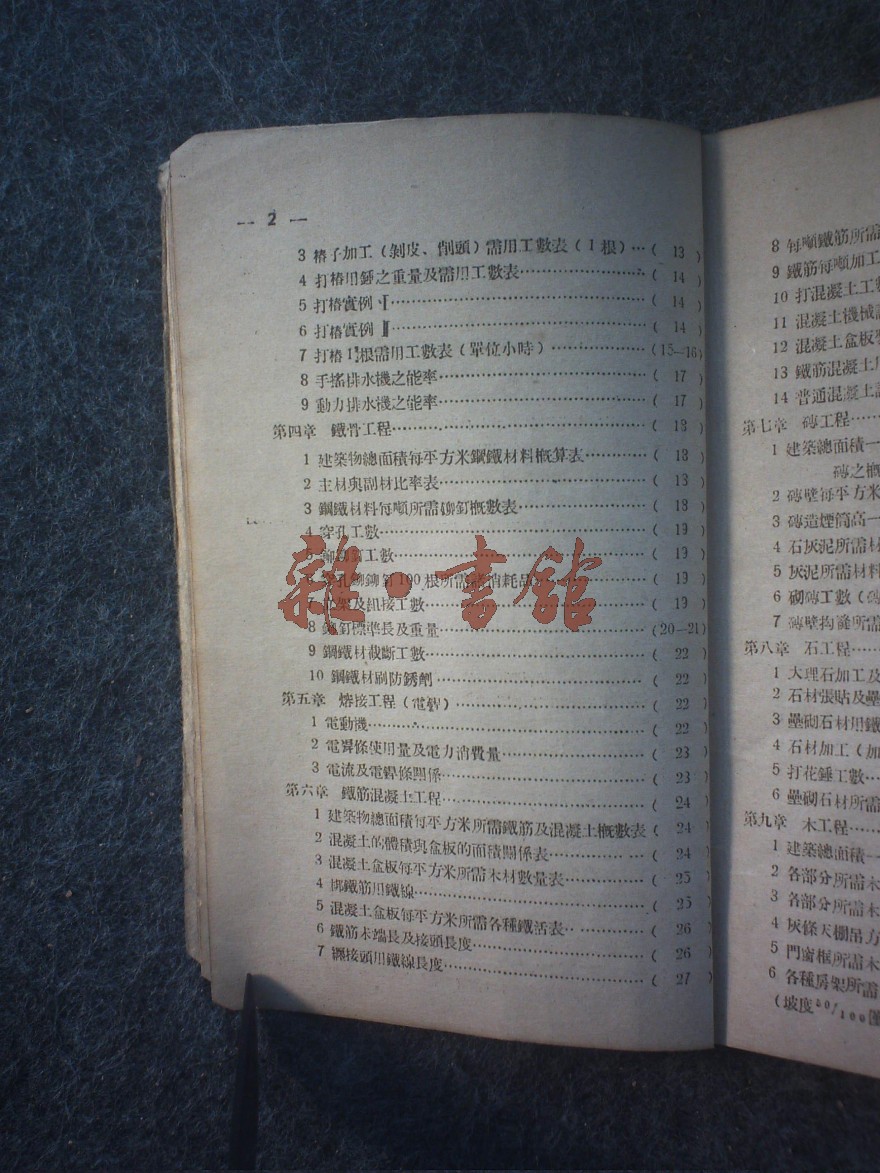 — 2 —
3 樁子加工（剝皮、削頭）需用工數表（1根）…( 13 )
4 打樁用錘之重量及需用工數表……………( 14 )
5 打樁實例 Ⅰ……………………………( 14 )
6 打樁實例 Ⅱ……………………………( 14 )
7 打樁1根需用工數表（單位小時）…………(15—16)
8 手搖排水機之能率………………………( 17 )
9 動力排水機之能率………………………( 17 )
第四章 鐵骨工程……………………………( 18 )
1 建築物總面積每平方米鋼鐵材料概算表………( 18 )
2 主材與副材比率表………………………( 18 )
3 鋼鐵材料每噸所需鉚釘概數表……………( 18 )
4 穿孔工數………………………………( 19 )
工數………………………………( 19 )
穿孔鉚 100根所需 消耗品………( 19 )
架及組接工數……………………( 19 )
8 鉚釘標準長及重量……………………(20—21)
9 鋼鐵材截斷工數………………………( 22 )
10 鋼鐵材刷防銹劑………………………( 22 )
第五章 熔接工程（電銲）……………………( 22 )
1 電動機…………………………………( 22 )
2 電銲條使用量及電力消費量……………( 23 )
3 電流及電銲條關係……………………( 23 )
第六章 鐵筋混凝土工程……………………( 24 )
1 建築物總面積每平方米所需鐵筋及混凝土概數表( 24 )
2 混凝土的體積與盒板的面積關係表………( 24 )
3 混凝土盒板每平方米所需木材數量表……( 25 )
4 綁鐵筋用鐵線…………………………( 25 )
5 混凝土盒板每平方米所需各種鐵活表……( 26 )
6 鐵筋末端長及接頭長度…………………( 26 )
7 接頭用鐵線長度………………………( 27 )
雜·書館
8 每噸鐵筋所需
9 鐵筋每噸加工
10 打混凝土工
11 混凝土機械
12 混凝土盒板
13 鐵筋混凝土
14 普通混凝土
第七章 磚工程……
1 建築總面積一
磚之概
2 磚壁每平方米
3 磚造煙筒高一
4 石灰泥所需材
5 灰泥所需材料
6 砌磚工數（磚
7 磚壁拘縫所需
第八章 石工程……
1 大理石加工及
2 石材張貼及壘
3 壘砌石材用鐵
4 石材加工（加
5 打花錘工數…
6 壘砌石材所需
第九章 木工程……
1 建築總面積一
2 各部分所需木
3 各部分所需木
4 灰條天棚吊方
5 門窗框所需木
6 各種房架所需
（坡度20/100